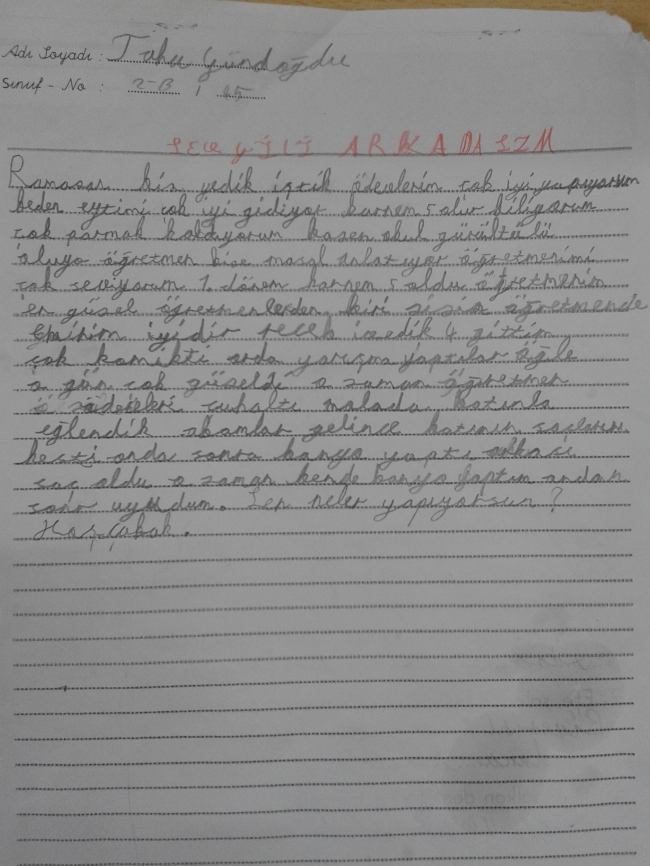 Adı Soyadı : Taha Gündoğdu
Sınıf - No : 2-B / 45
ARKADAŞIM
Ramasan biz yedik iştik ödevlerim çok iyi yapıyorum
beden eytimi çok iyi gidiyor karnem 5 alır biliyorum
çok parmak kaldıyorum basen okul gürültülü
oluyo öğretmen bise masal anlatıyor öğretmenimi
çok seviyorum 1. dönem karnem 5 oldu öğretmenim
en güsel öğretmenlerden biri sisin öğretmende
iyidir 4 gittim
çok komikti orda yarışma yaptılar öğle
o gün çok güseldi o zaman öğretmen
o malada batınla
eğlendik akamlar gelince batının saçlarını
kesti onda sonra banyo yaptı
saç aldu o zaman bende banyo yaptım ondan
sonr uyudum. Sen neler yapıyorsun ?
Hoşçakok.